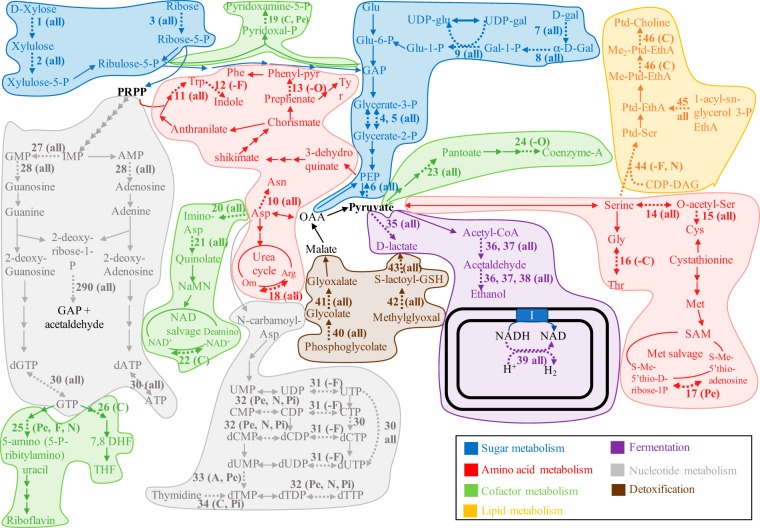 D-Xylose
1 (all)
Xylulose
2 (all)
Xylulose-5-P
Ribose
3 (all)
Ribose-5-P
Ribulose-5-P
Pyridoxamine-5-P
19 (C, Pe)
Pyridoxal-P
Glu
Glu-6-P
Glu-1-P
UDP-glu
UDP-gal
9 (all)
Gal-1-P
D-gal
7 (all)
α-D-Gal
8 (all)
GAP
Glycerate-3-P
4, 5 (all)
Glycerate-2-P
PEP
6 (all)
Pyruvate
OAA
Ptd-Choline
46 (C)
Me2-Ptd-EthA
46 (C)
Me-Ptd-EthA
Ptd-EthA
45
all
1-acyl-sn-
glycerol 3-P
EthA
Ptd-Ser
44 (-F, N)
CDP-DAG
PRPP
Trp
11 (all)
12 (-F)
Indole
Phe
Phenyl-pyr
13 (-O)
Prephenate
Ty
r
Anthranilate
Chorismate
shikimate
3-dehydro
quinate
Pantoate
23 (all)
24 (-O)
Coenzyme-A
27 (all)
GMP
IMP
AMP
28 (all)
28 (all)
Guanosine
Adenosine
Guanine
Adenine
2-deoxy-
ribose-1-
P
2-deoxy-
Guanosine
2-deoxy-
Adenosine
290 (all)
GAP +
acetaldehyde
dGTP
dATP
30 (all)
30 (all)
GTP
ATP
20 (all)
Imino-
Asp
21 (all)
Quinolate
NaMN
NAD
salvage
Deamino
NAD+
NAD+
22 (C)
Asn
10 (all)
Asp
Urea
cycle
Orn
Arg
18 (all)
N-carbamoyl-
Asp
Malate
Glyoxalate
41 (all)
Glycolate
40 (all)
Phosphoglycolate
43(all)
S-lactoyl-GSH
42 (all)
Methylglyoxal
35 (all)
D-lactate
Acetyl-CoA
36, 37 (all)
Acetaldehyde
36, 37, 38 (all)
Ethanol
I
NADH
NAD
39 all)
H+
H2
Serine
14 (all)
O-acetyl-Ser
15 (all)
Gly
16 (-C)
Thr
Cys
Cystathionine
Met
SAM
Met salvage
S-Me-
5'thio-D-
ribose-1P
S-Me-
5'thio-
adenosine
17 (Pe)
25 (Pe, F, N)
26 (C)
5-amino (5-P-
ribitylamino)
uracil
Riboflavin
7,8 DHF
THF
UMP
UDP
31 (-F)
UTP
32 (Pe, N, Pi)
CMP
CDP
31 (-F)
CTP
32 (Pe, N, Pi)
30
dCMP
dCDP
31 (-F)
dCTP
30
all
dUMP
dUDP
31 (-F)
dUTP
33 (A, Pe)
32 (Pe, N, Pi)
Thymidine
dTMP
dTDP
dTTP
34 (C, Pi)
Sugar metabolism
Amino acid metabolism
Cofactor metabolism
Lipid metabolism
Fermentation
Nucleotide metabolism
Detoxification